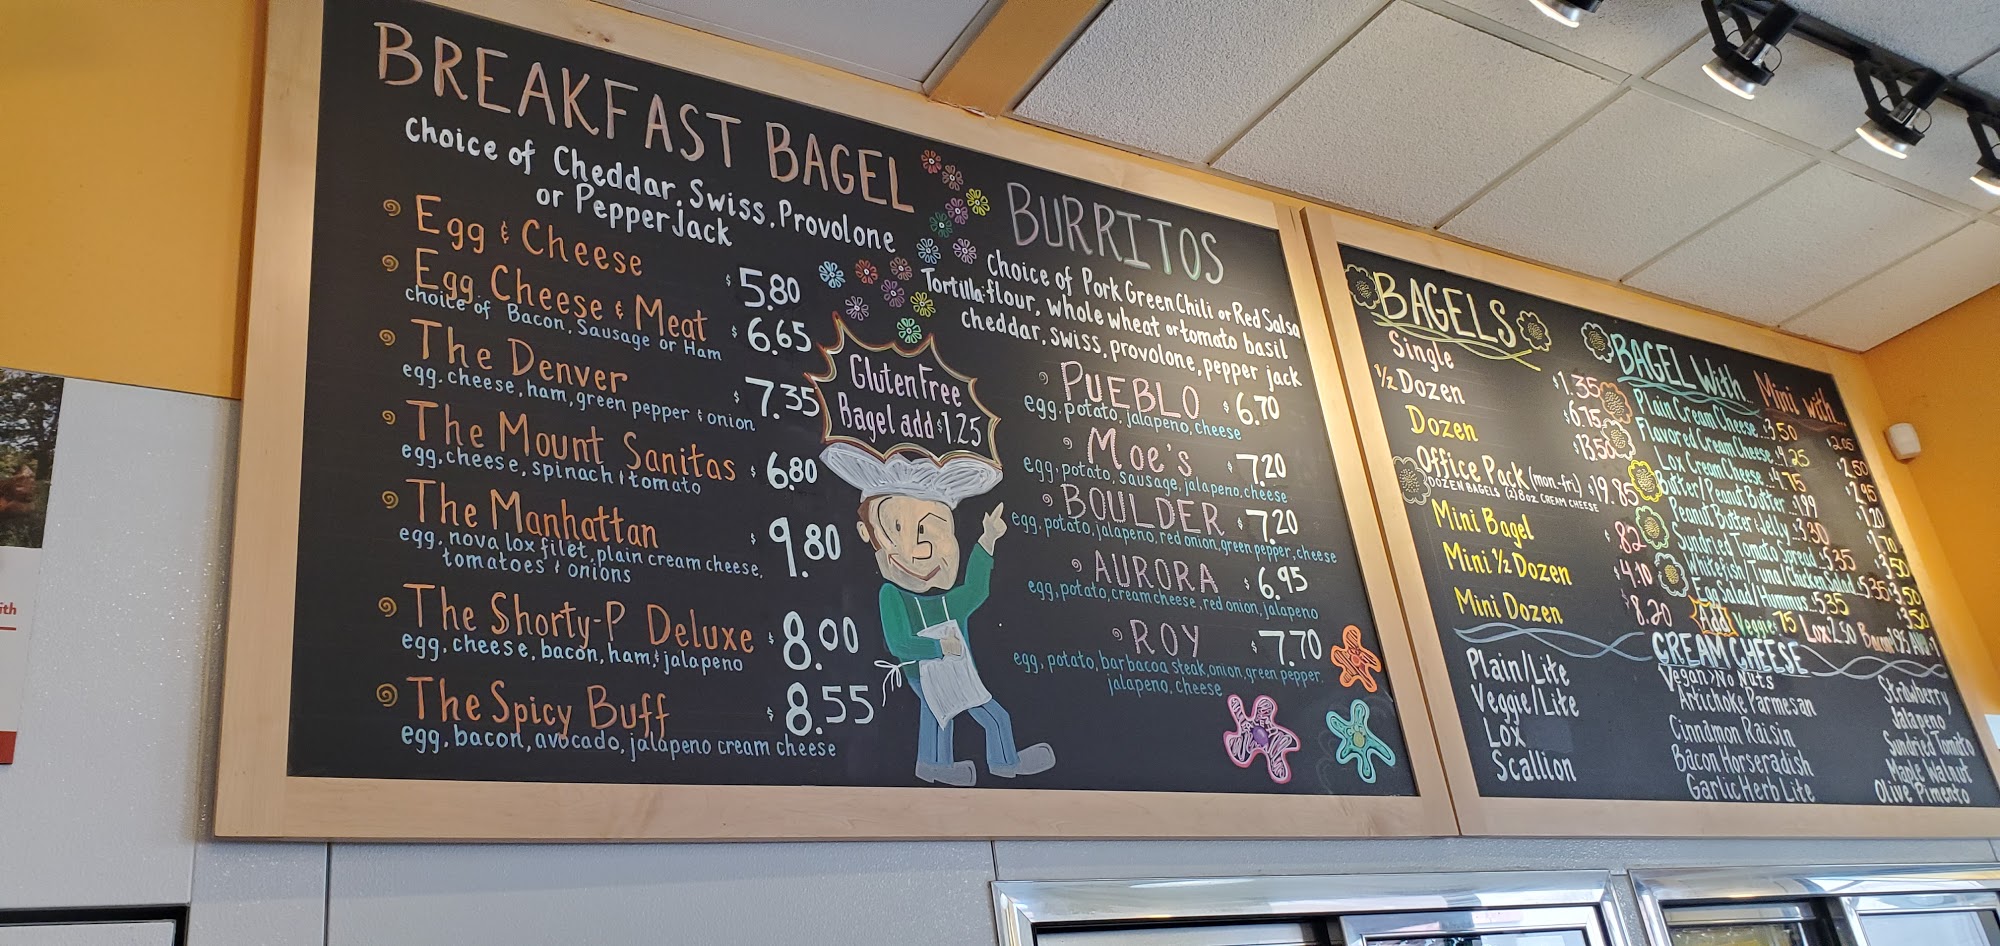 BREAKFAST BAGEL
Choice of Cheddar, Swiss, Provolone
or Pepperjack
Egg & Cheese $5.80
Egg, Cheese & Meat $6.65
choice of Bacon, Sausage or Ham
The Denver $7.35
egg, cheese, ham, green pepper & onion
The Mount Sanitas $6.80
egg, cheese, spinach & tomato
The Manhattan $9.80
egg, nova lox filet, plain cream cheese,
tomatoes & onions
The Shorty-P Deluxe $8.00
egg, cheese, bacon, ham & jalapeno
The Spicy Buff $8.55
egg, bacon, avocado, jalapeno cream cheese
Gluten Free
Bagel add $1.25
BURRITOS
Choice of Pork Green Chili or Red Salsa
Tortilla: flour, whole wheat or tomato basil
cheddar, swiss, provolone, pepper jack
PUEBLO $6.70
egg, potato, jalapeno, cheese
Moe's $7.20
egg, potato, sausage, jalapeno, cheese
BOULDER $7.20
egg, potato, jalapeno, red onion, green pepper, cheese
AURORA $6.95
egg, potato, cream cheese, red onion, jalapeno
ROY $7.70
egg, potato, barbacoa steak, onion, green pepper,
jalapeno, cheese
BAGELS
Single $1.35
1/2 Dozen $6.75
Dozen $13.50
Office Pack (mon.-fri) $19.85
DOZEN BAGELS (2) 8oz CREAM CHEESE
Mini Bagel $.82
Mini 1/2 Dozen $4.10
Mini Dozen $8.20
BAGEL With... Mini with...
Plain Cream Cheese 3.50 2.05
Flavored Cream Cheese 4.25 2.50
Lox Cream Cheese 4.75 2.95
Butter/Peanut Butter 1.99 1.20
Peanut Butter & Jelly 3.30 1.70
Sundried Tomato Spread 5.35 3.50
Whitefish/Tuna/Chicken Salad 5.35 3.50
Egg Salad/Hummus 5.35 3.50
Add Veggie .75 Lox 2.50
CREAM CHEESE
Plain/Lite
Veggie/Lite
Lox
Scallion
Vegan/No Nuts
Artichoke Parmesan
Cinnamon Raisin
Bacon Horseradish
Garlic Herb Lite
Strawberry
Jalapeno
Sundried Tomato
Maple Walnut
Olive Pimento
ith